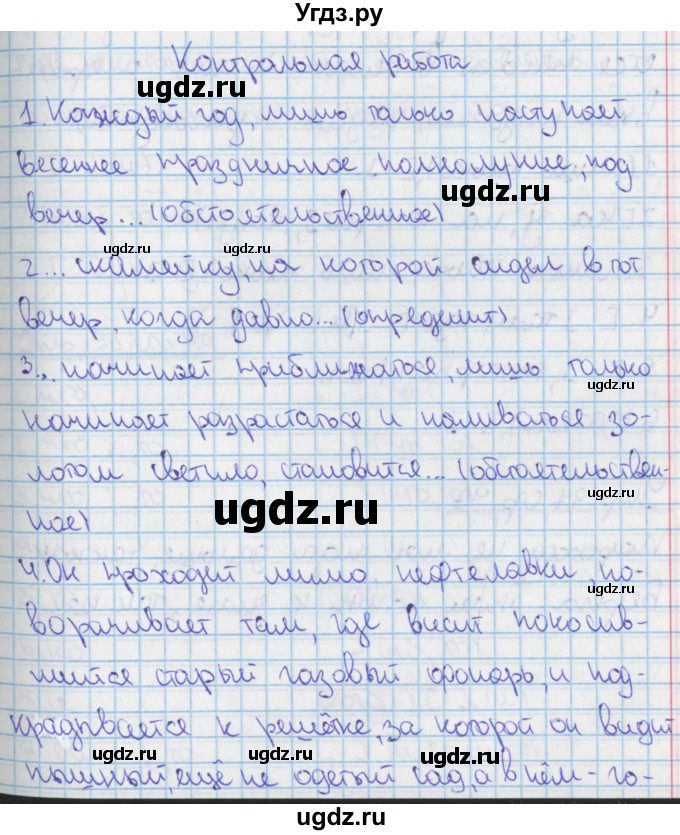 Угдз.ру
Контрольная работа
ugdz.ru
1. Каждый год, лишь только наступает
весеннее праздничное полнолуние, под
ugdz.ru
вечер... (обстоятельственное)
ugdz.ru
ugdz.ru
2... скамейку, на которой сидел в тот
вечер, когда давно... (определит)
3... начинает приближаться, лишь только
ugdz.ru
начинает разрастаться и наливаться зо-
лотом светило, становится... (обстоятельствен-
ugdz.ru
ugdz.ru
ное)
4. Он проходит мимо нефтелавки, по-
ворачивает там, где висит покосив-
шийся старый газовый фонарь, и под-
крадывается к решётке, за которой он видит
ugdz.ru
ugdz.ru
ugdz.ru
пышный, ещё не одетый сад, а в нём - го-
ugdz.ru